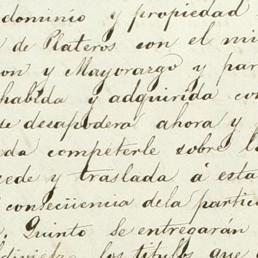 dominio y propiedad
de Plateros con el mi
on y Mayorazgo y par
habida y adquirida co
se desapodera ahora y
eda competerle sobre l
cede y traslada á esta
consecüencia dela partic
Quinto se entregarán
los titulos que